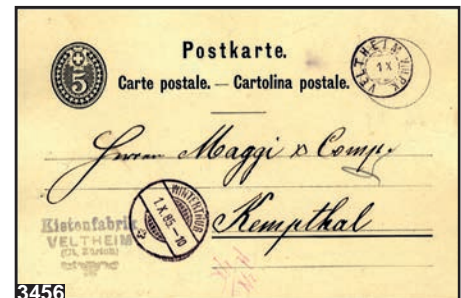 5
Postkarte.
Carte postale. — Cartolina postale.
VELTHEIM
1 X
Herren Maggi & Comp.
Kempthal
WINTERTHUR
1.X.85.-10
Kistenfabrik
VELTHEIM
(Ct. Zürich)
3456